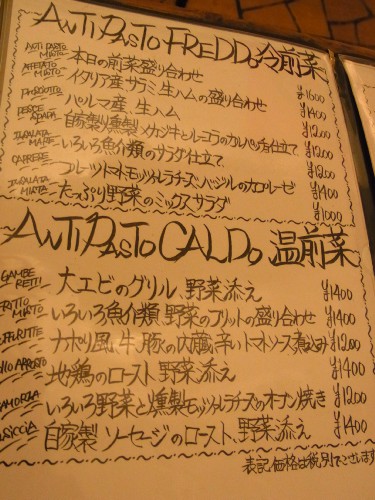 ANTIPASTO FREDDO 冷前菜
ANTIPASTO MISTO 本日の前菜盛り合わせ ¥1600
AFFETATO MISTO イタリア産サラミ、生ハムの盛り合わせ ¥1400
PROSCIUTTO パルマ産 生ハム ¥1200
PESCE SPADA 自家製燻製メカジキとルーコラのカルパッチョ仕立て ¥1400
INSALATA MARE いろいろ魚介類のサラダ仕立て ¥1200
CAPRESE フルーツトマト、モッツァレラチーズ、バジルのカプレーゼ ¥1200
INSALATA MISTA たっぷり野菜のミックスサラダ ¥1000
ANTIPASTO CALDO 温前菜
GAMBERETTI 大エビのグリル、野菜添え ¥1400
FRITTO MISTO いろいろ魚介類、野菜のフリットの盛り合わせ ¥1400
ナポリ風、牛、豚の内臓、辛いトマトソース煮込み ¥1200
ARROSTO 地鶏のロースト、野菜添え ¥1400
いろいろ野菜と燻製モッツァレラチーズのオーブン焼き ¥1200
自家製 ソーセージのロースト、野菜添え ¥1400
表記価格は税別でございます